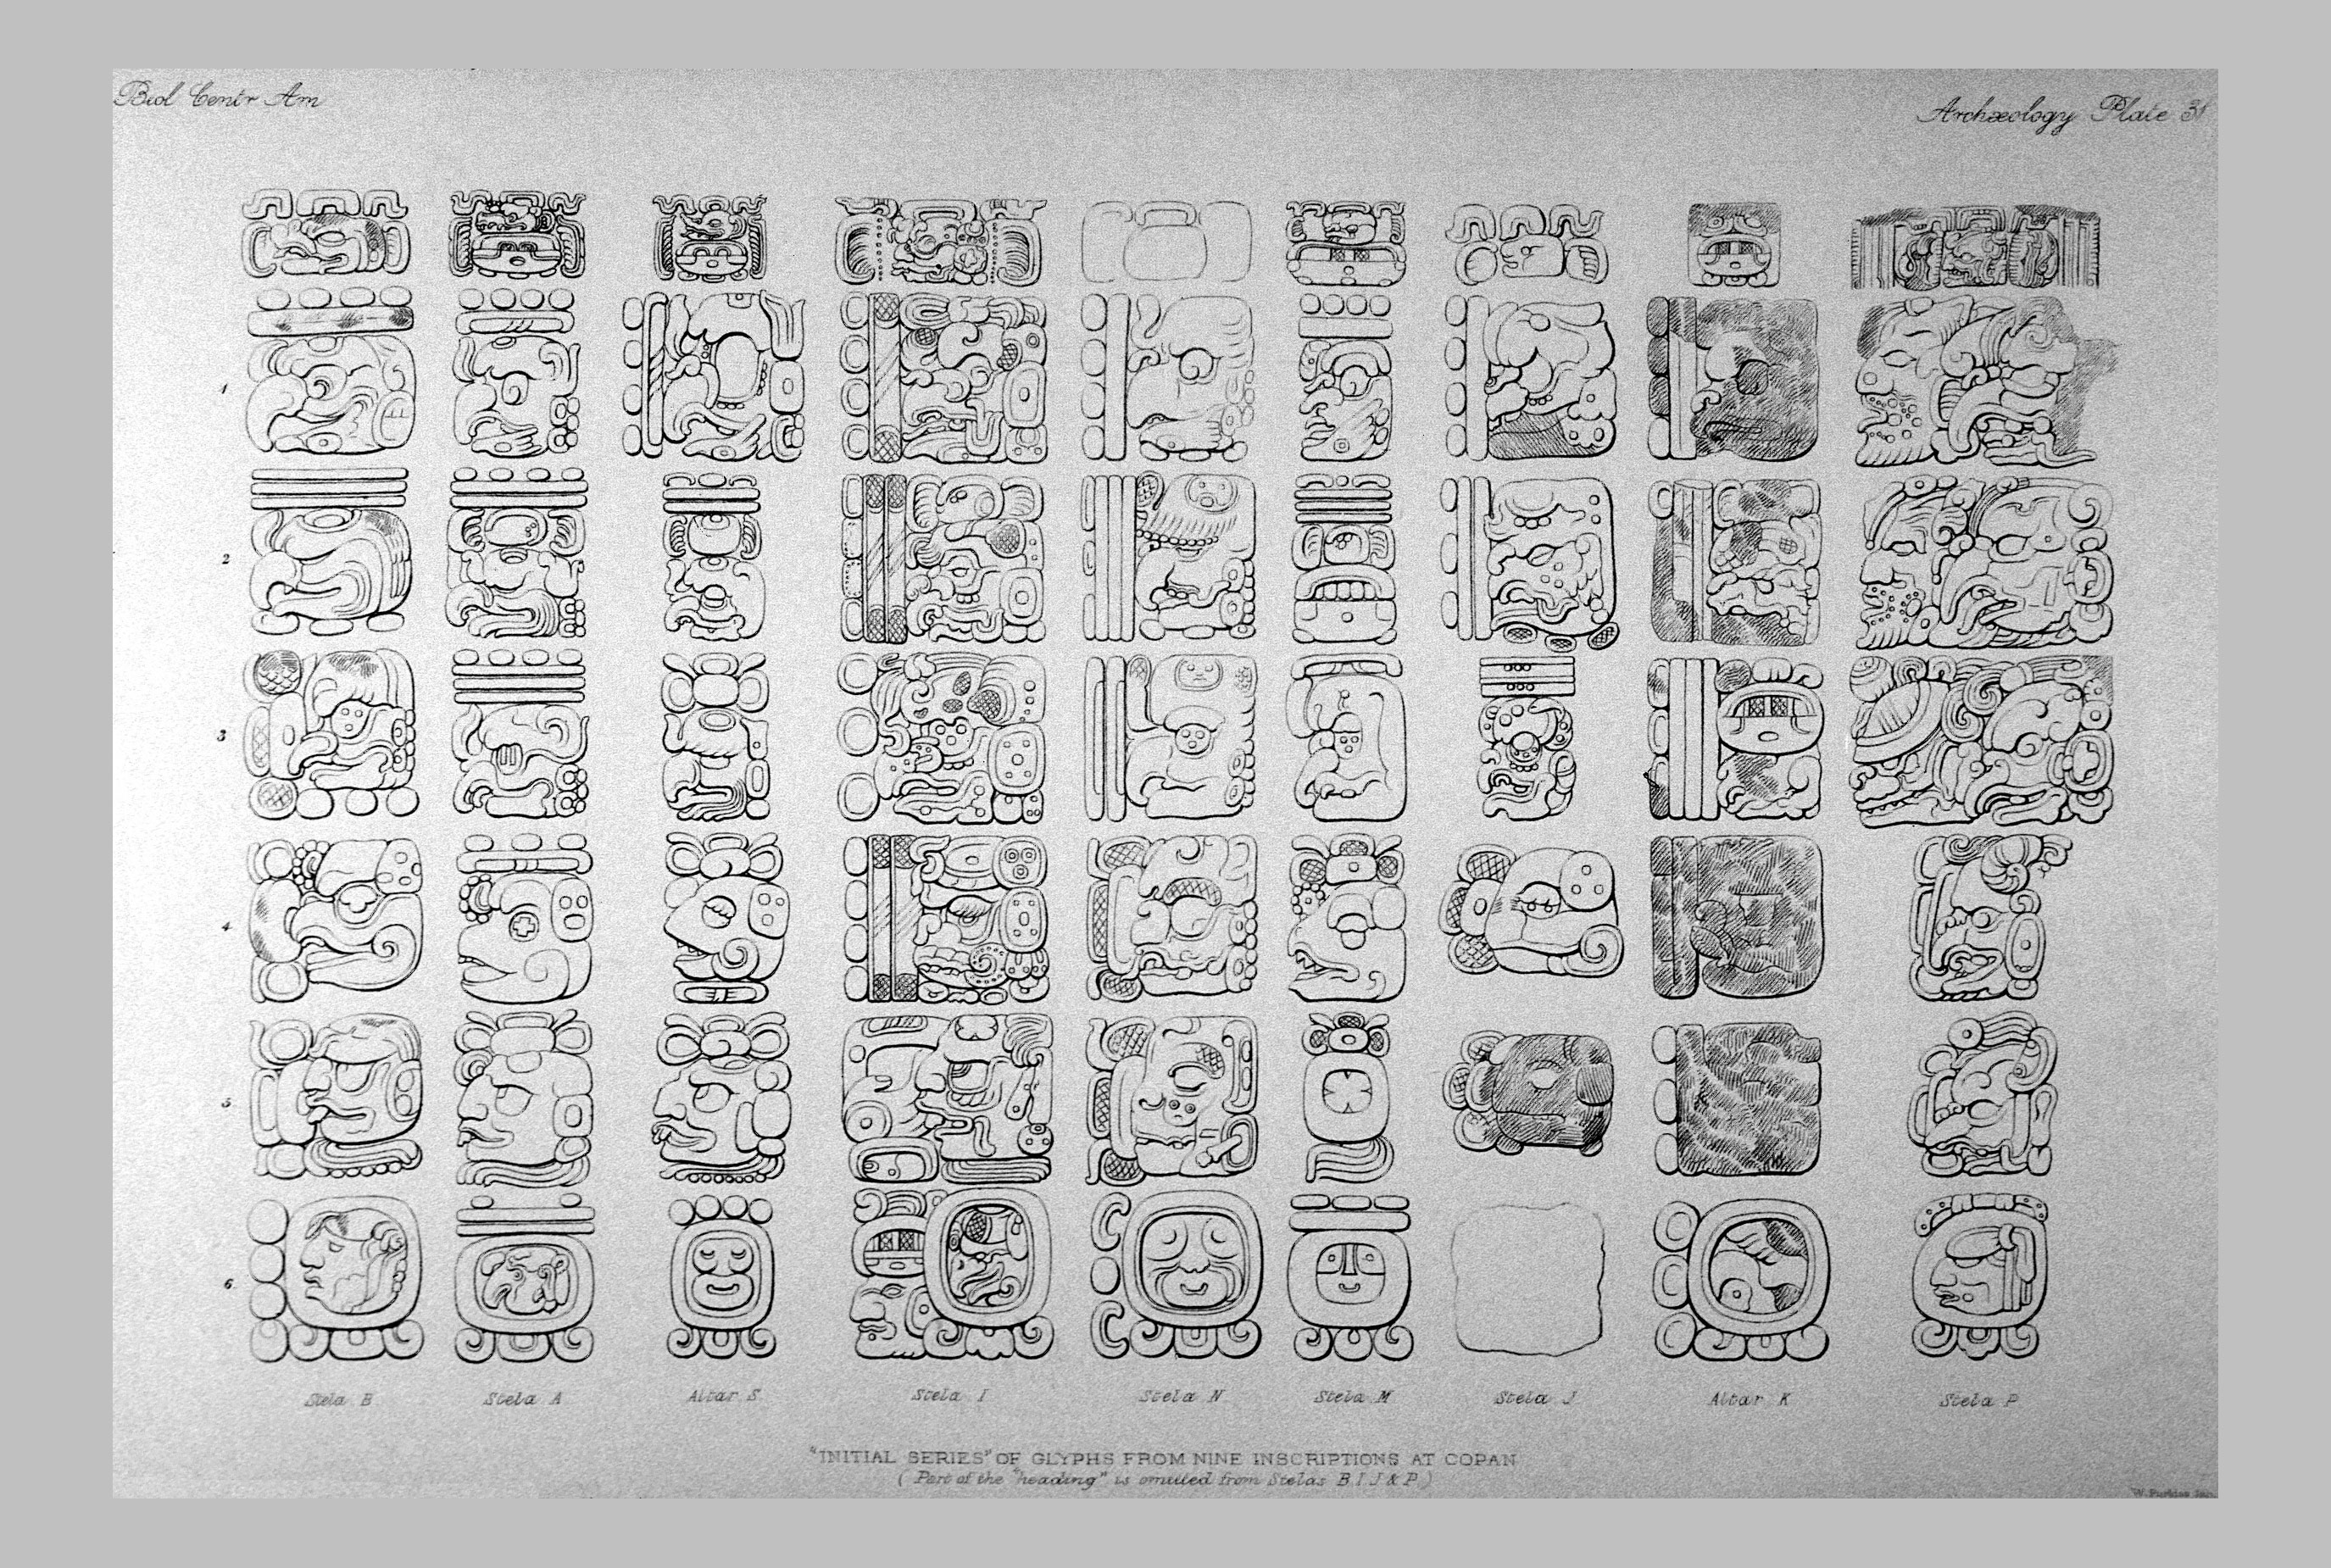 Biol Centr Am
Archæology Plate 31
1
2
3
4
5
6
Stela B
Stela A
Altar S
Stela I
Stela N
Stela M
Stela J
Altar K
Stela P
"INITIAL SERIES" OF GLYPHS FROM NINE INSCRIPTIONS AT COPAN
( Part of the "heading" is omitted from Stelas B.I.J & P.)